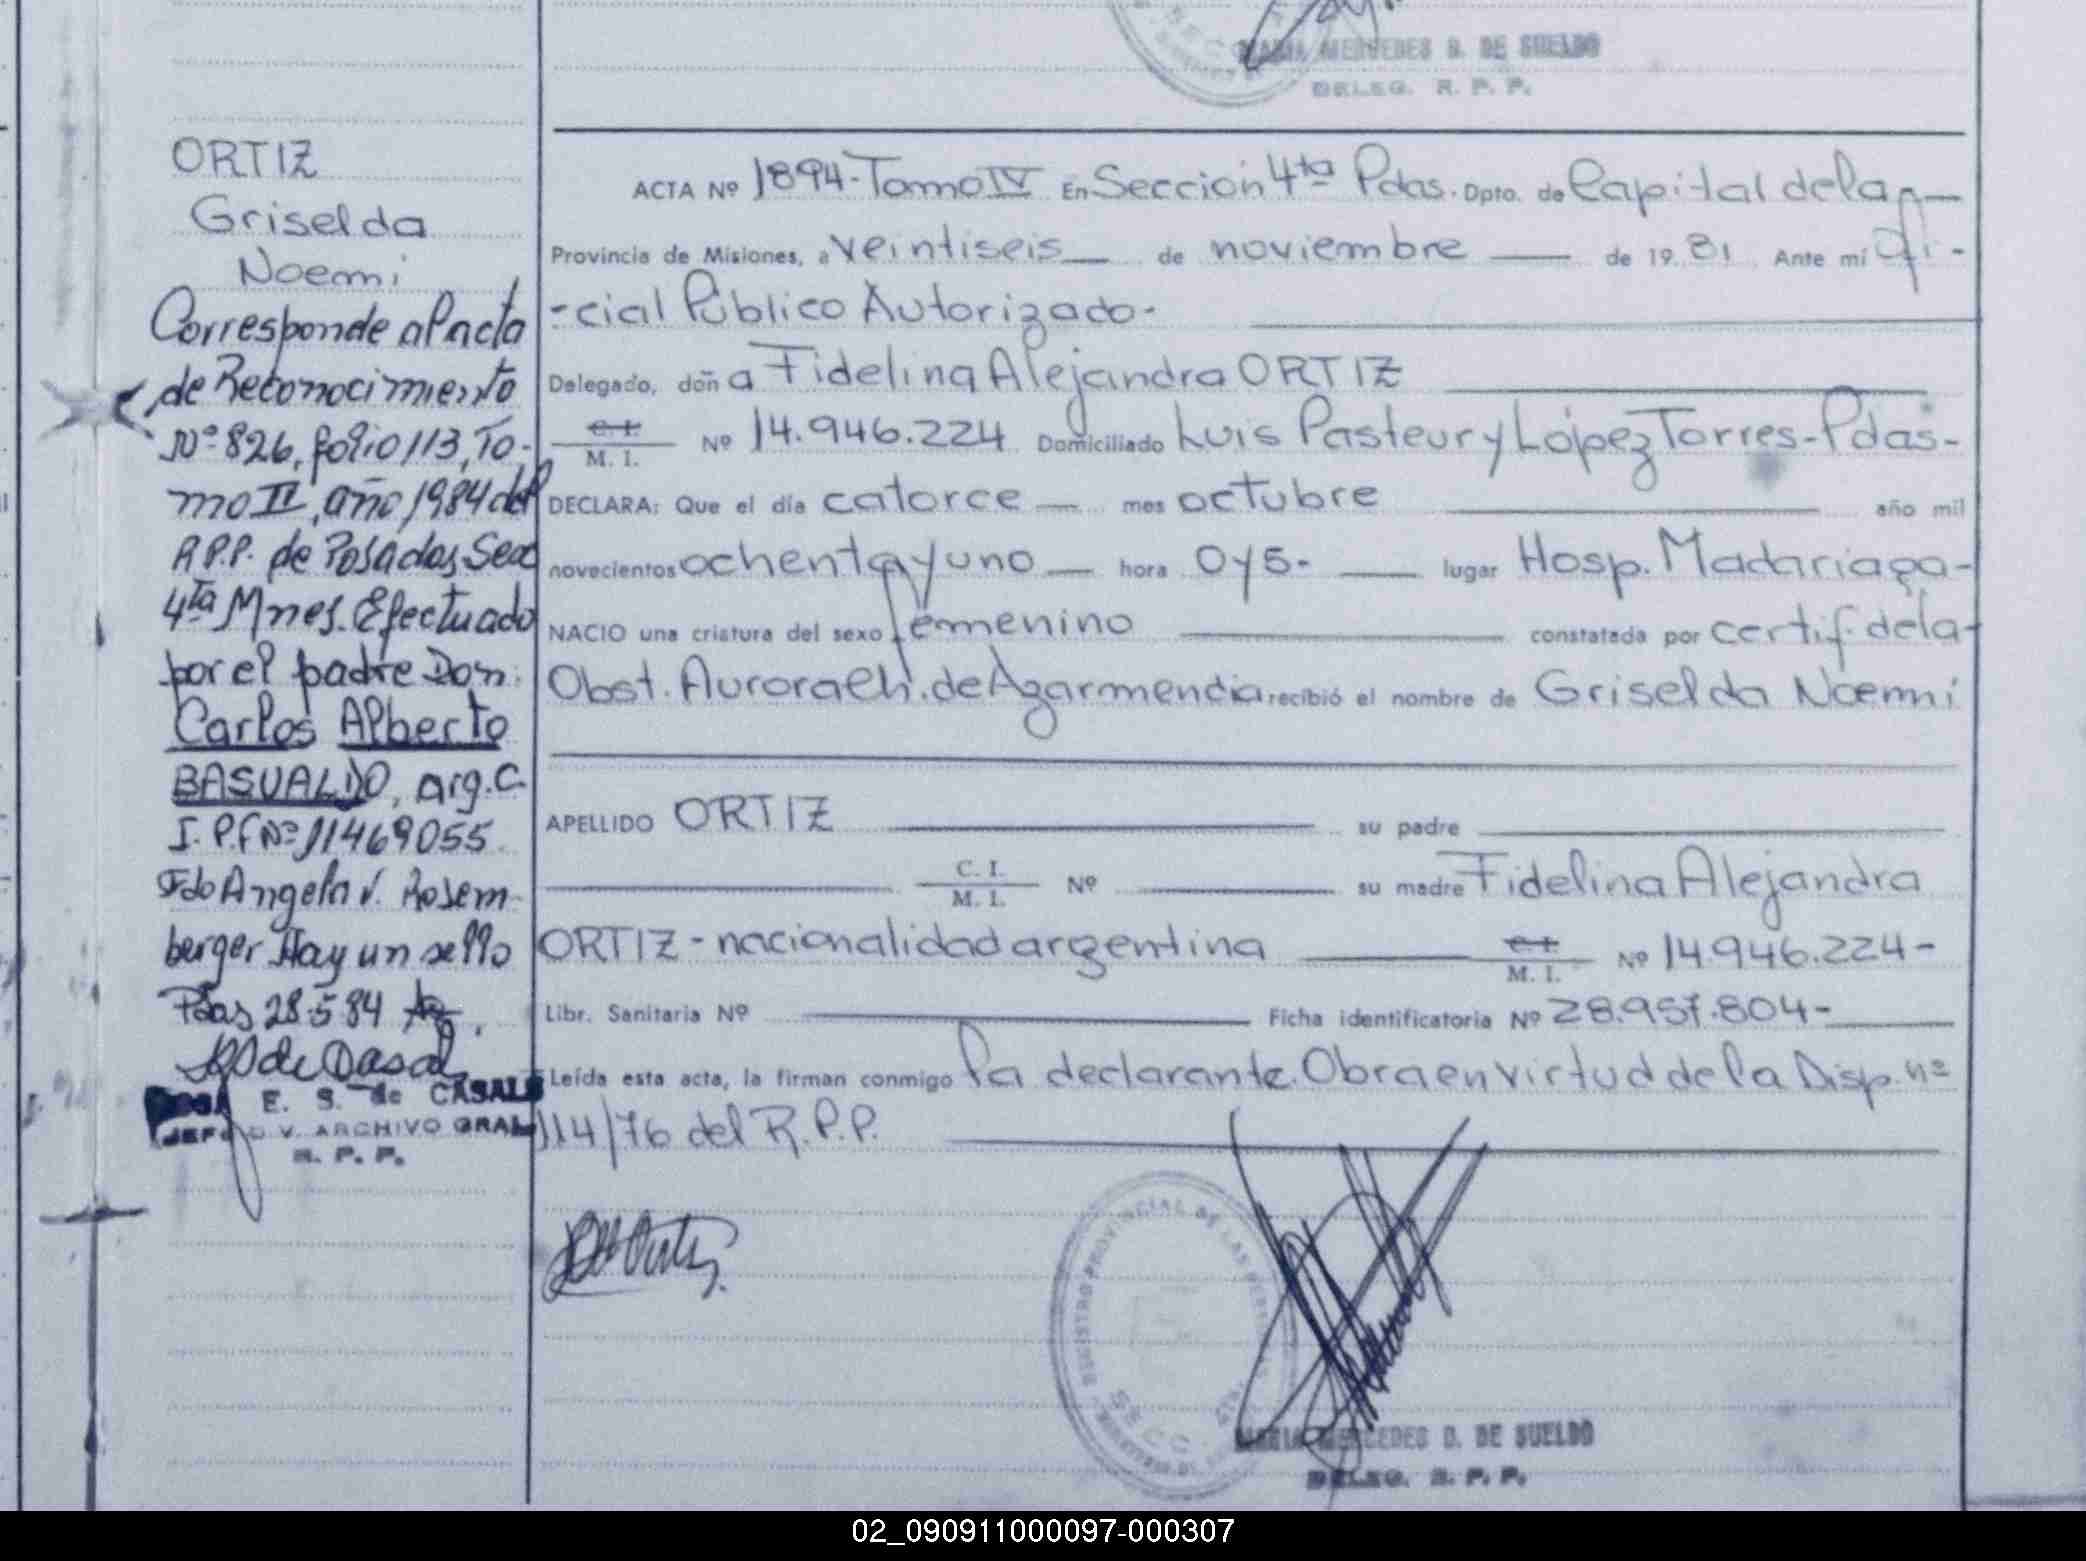 MARIA MERCEDES D. DE SUELDO
DELEG. R. P. P.
ORTIZ
Griselda
Noemi
Corresponde al acta
de Reconocimiento
Nº 826, folio 113, To-
mo II, año 1984 del
R.P.P. de Posadas Secc
4ta Mnes. Efectuado
por el padre Don:
Carlos Alberto
BASUALDO, arg. C.
I. P.f Nº 11469055
Fdo Angela V. Rosem-
berger Hay un sello
Pdas 28-5-84
E. S. de CASALS
JEF DIV. ARCHIVO GRAL
R. P. P.
ACTA Nº 1894-Tomo IV En Seccion 4ta Pdas. Dpto. de Capital de la
Provincia de Misiones, a veintiseis de noviembre de 19 81 Ante mí Ofi-
-cial Público Autorizado-
Delegado, doña Fidelina Alejandra ORTIZ
C. I.
M. I. Nº 14.946.224 Domiciliado Luis Pasteur y López Torres-Pdas-
DECLARA: Que el día catorce mes octubre año mil
novecientos ochenta y uno hora 0 y 5- lugar Hosp. Madariaga-
NACIO una criatura del sexo femenino constatada por certif. de la-
Obst. Aurora Ch. de Azarmendia recibió el nombre de Griselda Noemi
APELLIDO ORTIZ su padre
C. I.
M. I. Nº su madre Fidelina Alejandra
ORTIZ - nacionalidad argentina C. I.
M. I. Nº 14.946.224-
Libr. Sanitaria Nº Ficha identificatoria Nº 28.957.804-
Leída esta acta, la firman conmigo la declarante. Obra en virtud de la Disp. nº
114/76 del R.P.P.
REGISTRO PROVINCIAL DE LAS PERSONAS
SECC.
MARIA MERCEDES D. DE SUELDO
DELEG. R. P. P.
02_090911000097-000307